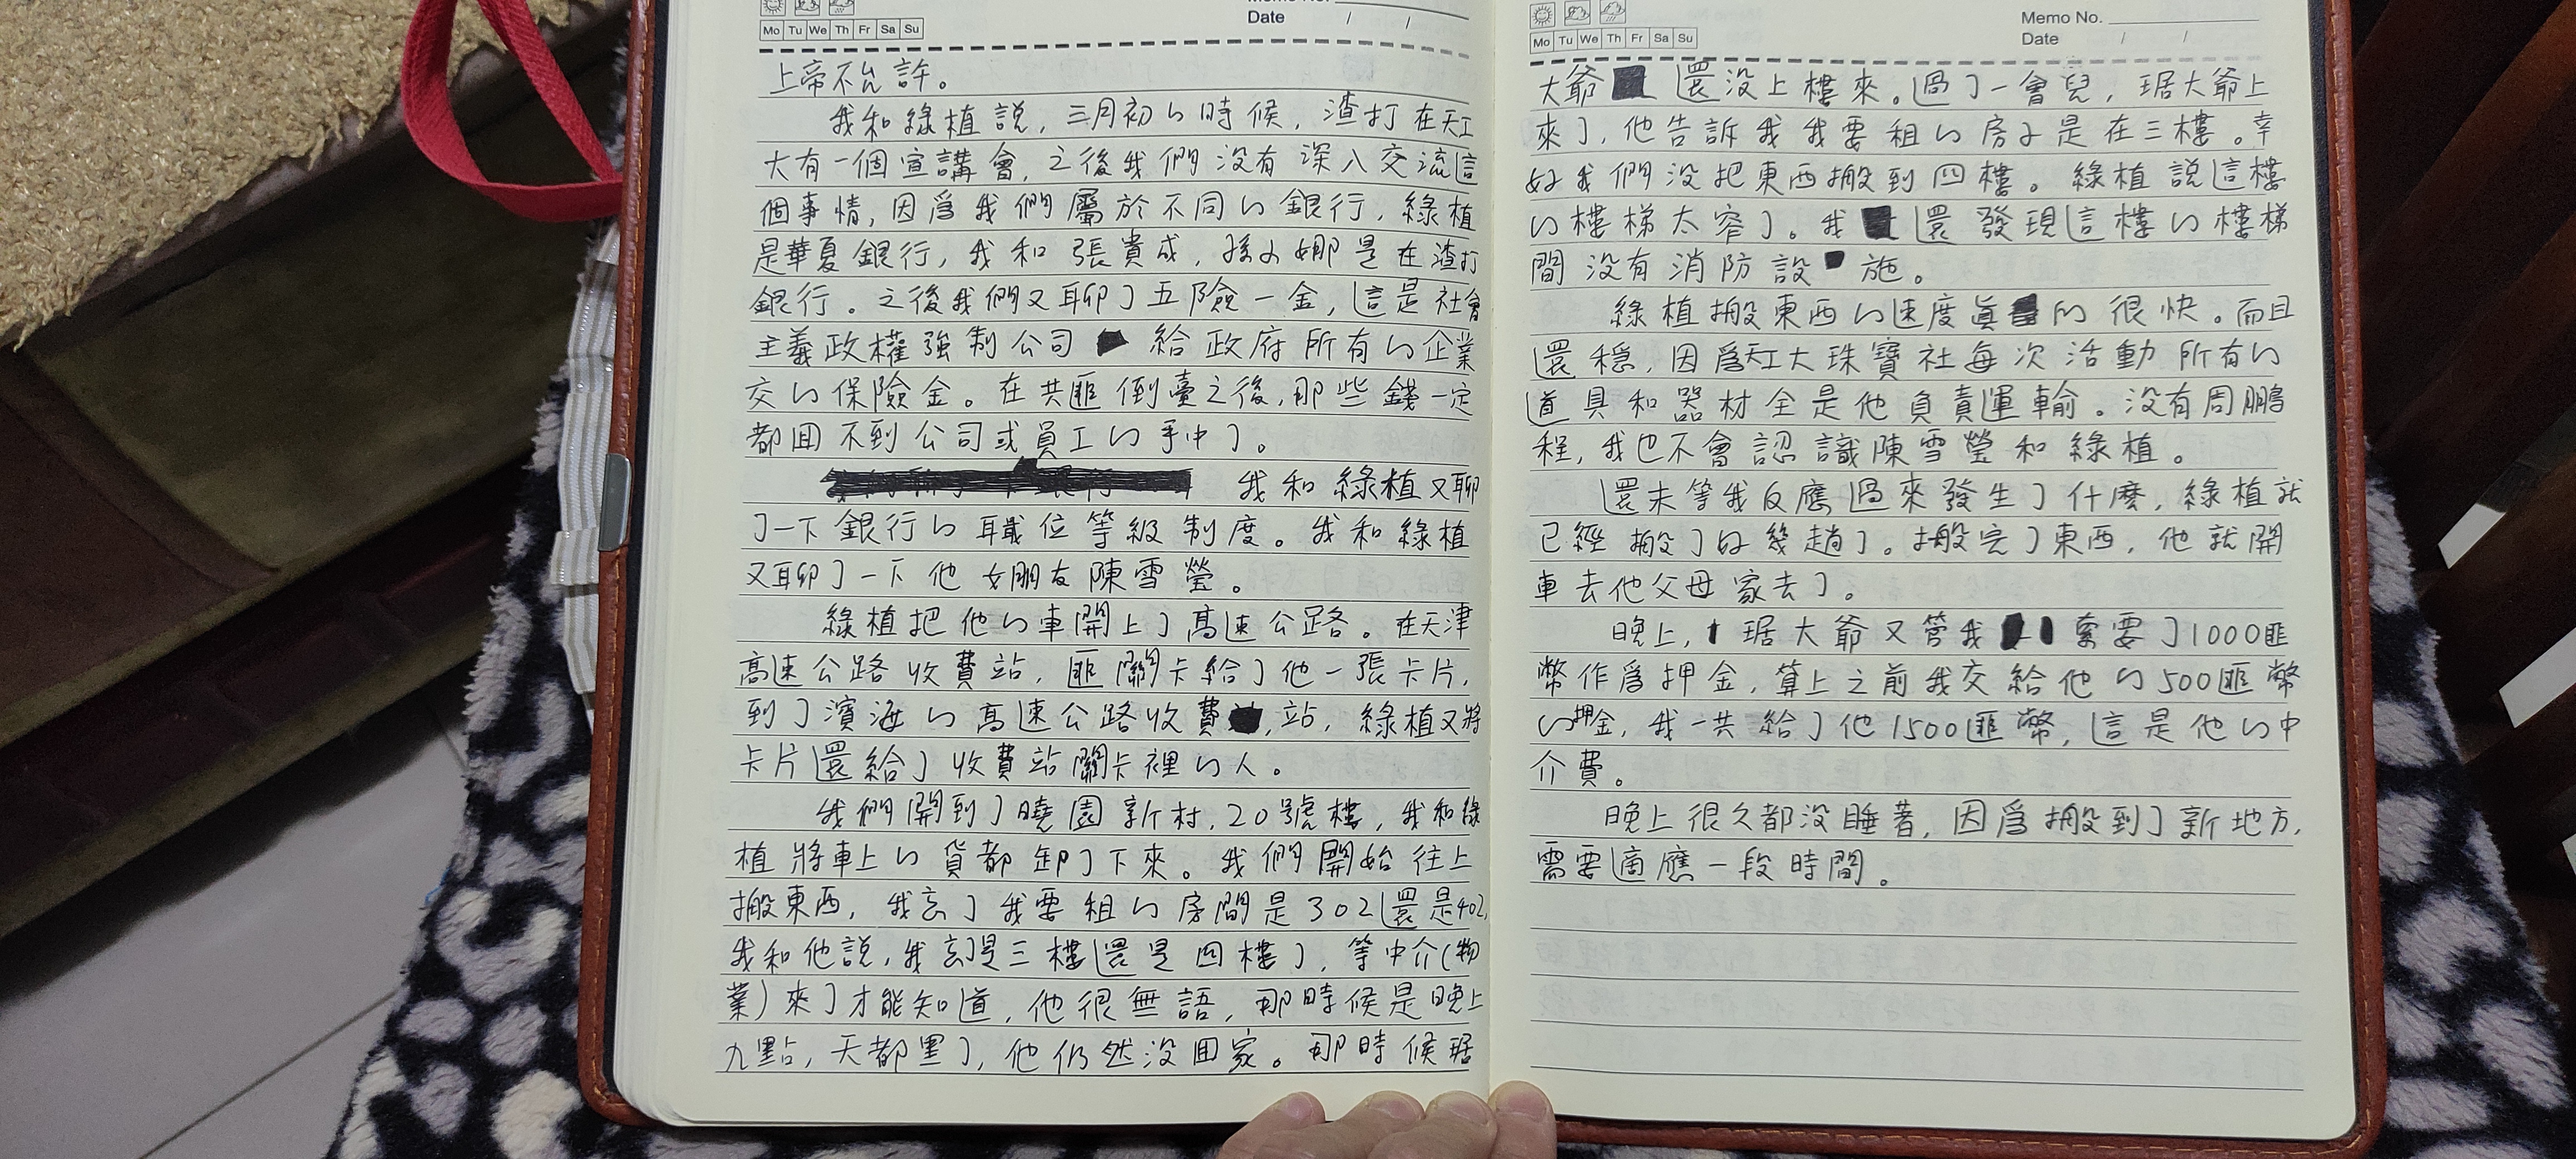 Mo Tu We Th Fr Sa Su
Memo No.
Date / /
上帝不允許。
我和綠植説，三月初的時候，渣打在天工
大有一個宣講會，之後我們没有深入交流這
個事情，因爲我們屬於不同的銀行，綠植
是華夏銀行，我和張貴成，孫乂娜是在渣打
銀行。之後我們又聊了五險一金，這是社會
主義政權強制公司給政府所有的企業
交的保險金。在共匪倒臺之後，那些錢一定
都回不到公司或員工的手中了。
我和綠植又聊
了一下銀行的職位等級制度。我和綠植
又聊了一下他女朋友陳雪瑩。
綠植把他的車開上了高速公路。在天津
高速公路收費站，匪關卡給了他一張卡片，
到了濱海的高速公路收費，站，綠植又將
卡片還給了收費站關卡裡的人。
我們開到了曉園新村，20號樓，我和綠
植將車上的貨都卸了下來。我們開始往上
搬東西，我忘了我要租的房間是302還是402，
我和他説，我忘了是三樓還是四樓了，等中介（物
業）來了才能知道，他很無語，那時候是晚上
九點，天都黑了，他仍然没回家。那時候琚
Mo Tu We Th Fr Sa Su
Memo No.
Date / /
大爺還没上樓來。過了一會兒，琚大爺上
來了，他告訴我我要租的房子是在三樓。幸
好我們没把東西搬到四樓。綠植説這樓
的樓梯太窄了。我還發現這樓的樓梯
間没有消防設施。
綠植搬東西的速度真的很快。而且
還穩，因爲天工大珠寶社每次活動所有的
道具和器材全是他負責運輸。没有周鵬
程，我也不會認識陳雪瑩和綠植。
還未等我反應過來發生了什麽，綠植就
已經搬了好幾趟了。搬完了東西，他就開
車去他父母家去了。
晚上，琚大爺又管我索要了1000匪
幣作爲押金，算上之前我交給他的500匪幣
的押金，我一共給了他1500匪幣，這是他的中
介費。
晚上很久都没睡著，因爲搬到了新地方，
需要適應一段時間。